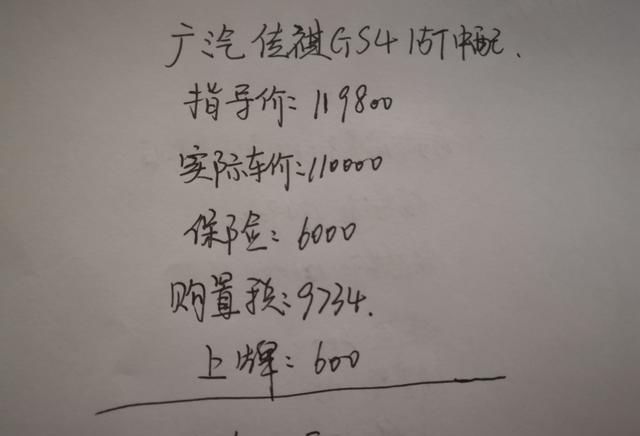 广汽传祺GS4 15T中配.
指导价:119800
实际车价:110000
保险:6000
购置税:9734.
上牌:600